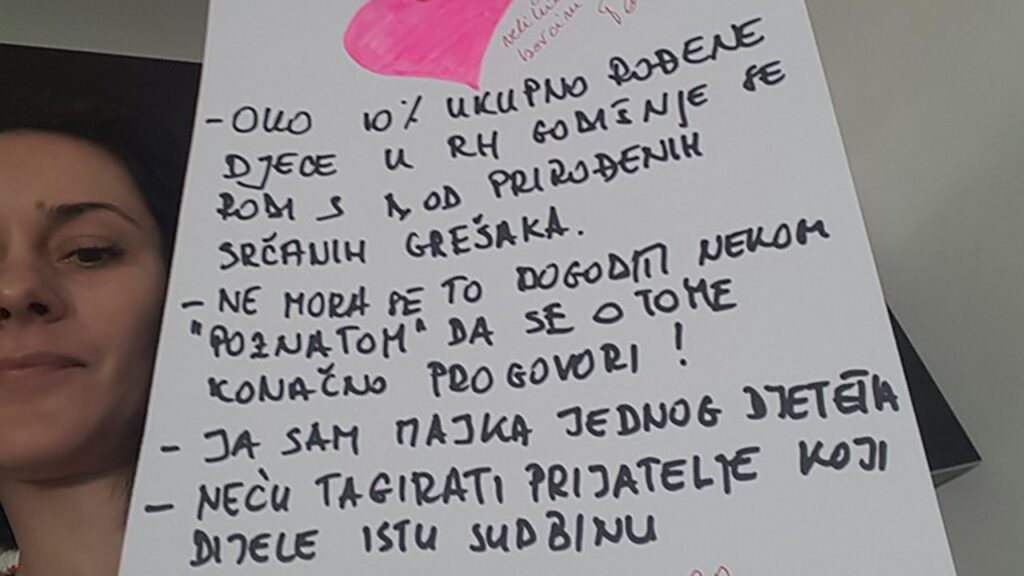 - OKO 10% UKUPNO ROĐENE
DJECE U RH GODIŠNJE SE
RODI S 1 OD PRIROĐENIH
SRČANIH GREŠAKA.
- NE MORA SE TO DOGODITI NEKOM
"POZNATOM" DA SE O TOME
KONAČNO PROGOVORI!
- JA SAM MAJKA JEDNOG DJETETA
- NEĆU TAGIRATI PRIJATELJE KOJI
DIJELE ISTU SUDBINU